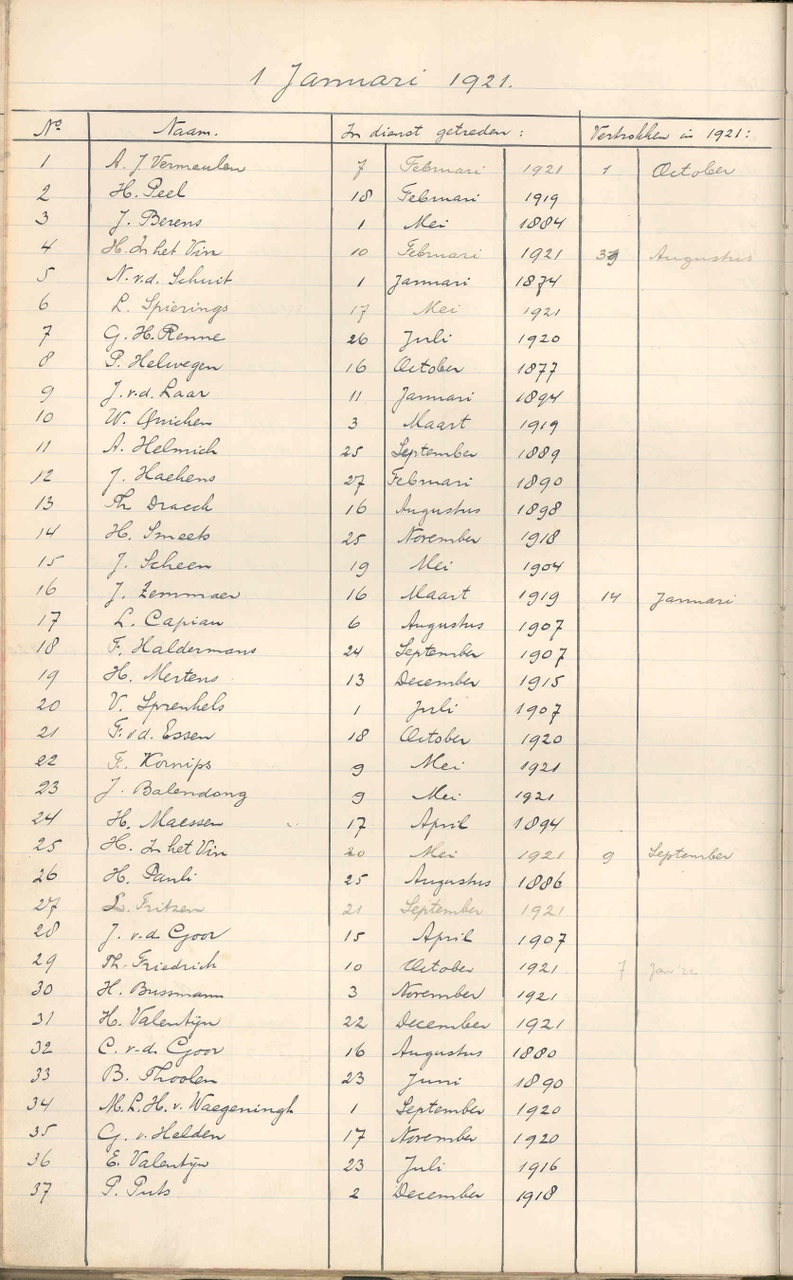 1 Januari 1921.
No. Naam. In dienst getreden: Vertrokken in 1921:
1 A. J. Vermeulen 7 Februari 1921 1 October
2 H. Peel 18 Februari 1919
3 J. Berens 1 Mei 1884
4 H. In het Vin 10 Februari 1921 Augustus
5 N. v.d. Schuit 1 Januari 1874
6 L. Spierings 17 Mei 1921
7 G. H. Renne 26 Juli 1920
8 P. Helwegen 16 October 1877
9 J. v.d. Laar 11 Januari 1894
10 W. 3 Maart 1919
11 A. Helmich 25 September 1889
12 J. Haekens 27 Februari 1890
13 Th 16 Augustus 1898
14 H. Smeets 25 November 1918
15 J. Scheen 19 Mei 1904
16 J. Zemmaer 16 Maart 1919 14 Januari
17 L. Capiau 6 Augustus 1907
18 F. Haldermans 24 September 1907
19 H. Mertens 13 December 1915
20 V. Sprenkels 1 Juli 1907
21 F. v.d. Essen 18 October 1920
22 F. Kornips 9 Mei 1921
23 J. Balendong 9 Mei 1921
24 H. Maessen 17 April 1894
25 H. In het Vin 20 Mei 1921 9 September
26 H. Pauli 25 Augustus 1886
27 L. Fritsen 21 September 1921
28 J. v.d. Goor 15 April 1907
29 Th. Friedrich 10 October 1921 7 Jan '22
30 H. Bussmann 3 November 1921
31 H. Valentijn 22 December 1921
32 C. v.d. Goor 16 Augustus 1880
33 B. Thoolen 23 Juni 1890
34 M. L. H. v. Waegeningh 1 September 1920
35 G. v. Helden 17 November 1920
36 E. Valentijn 23 Juli 1916
37 P. Puts 2 December 1918